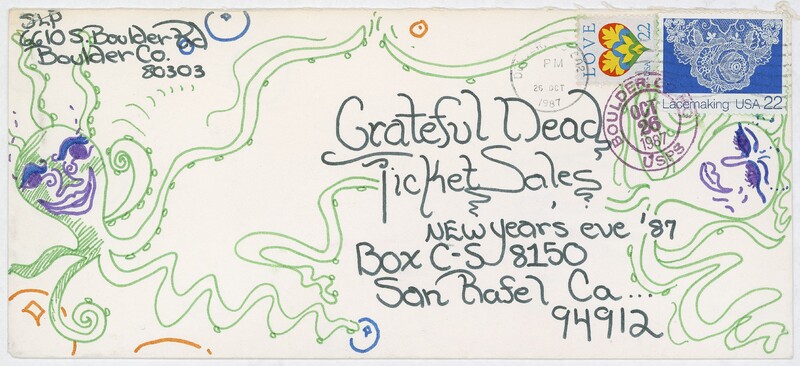 SLP
6610 S. Boulder Rd
Boulder Co.
80303
PM
26 OCT
1987
LOVE
22
USA
Lacemaking USA 22
BOULDER, CO
OCT
26
1987
USPS
Grateful Dead
Ticket Sales
NEW years eve '87
Box C-S 8150
San Rafel Ca...
94912